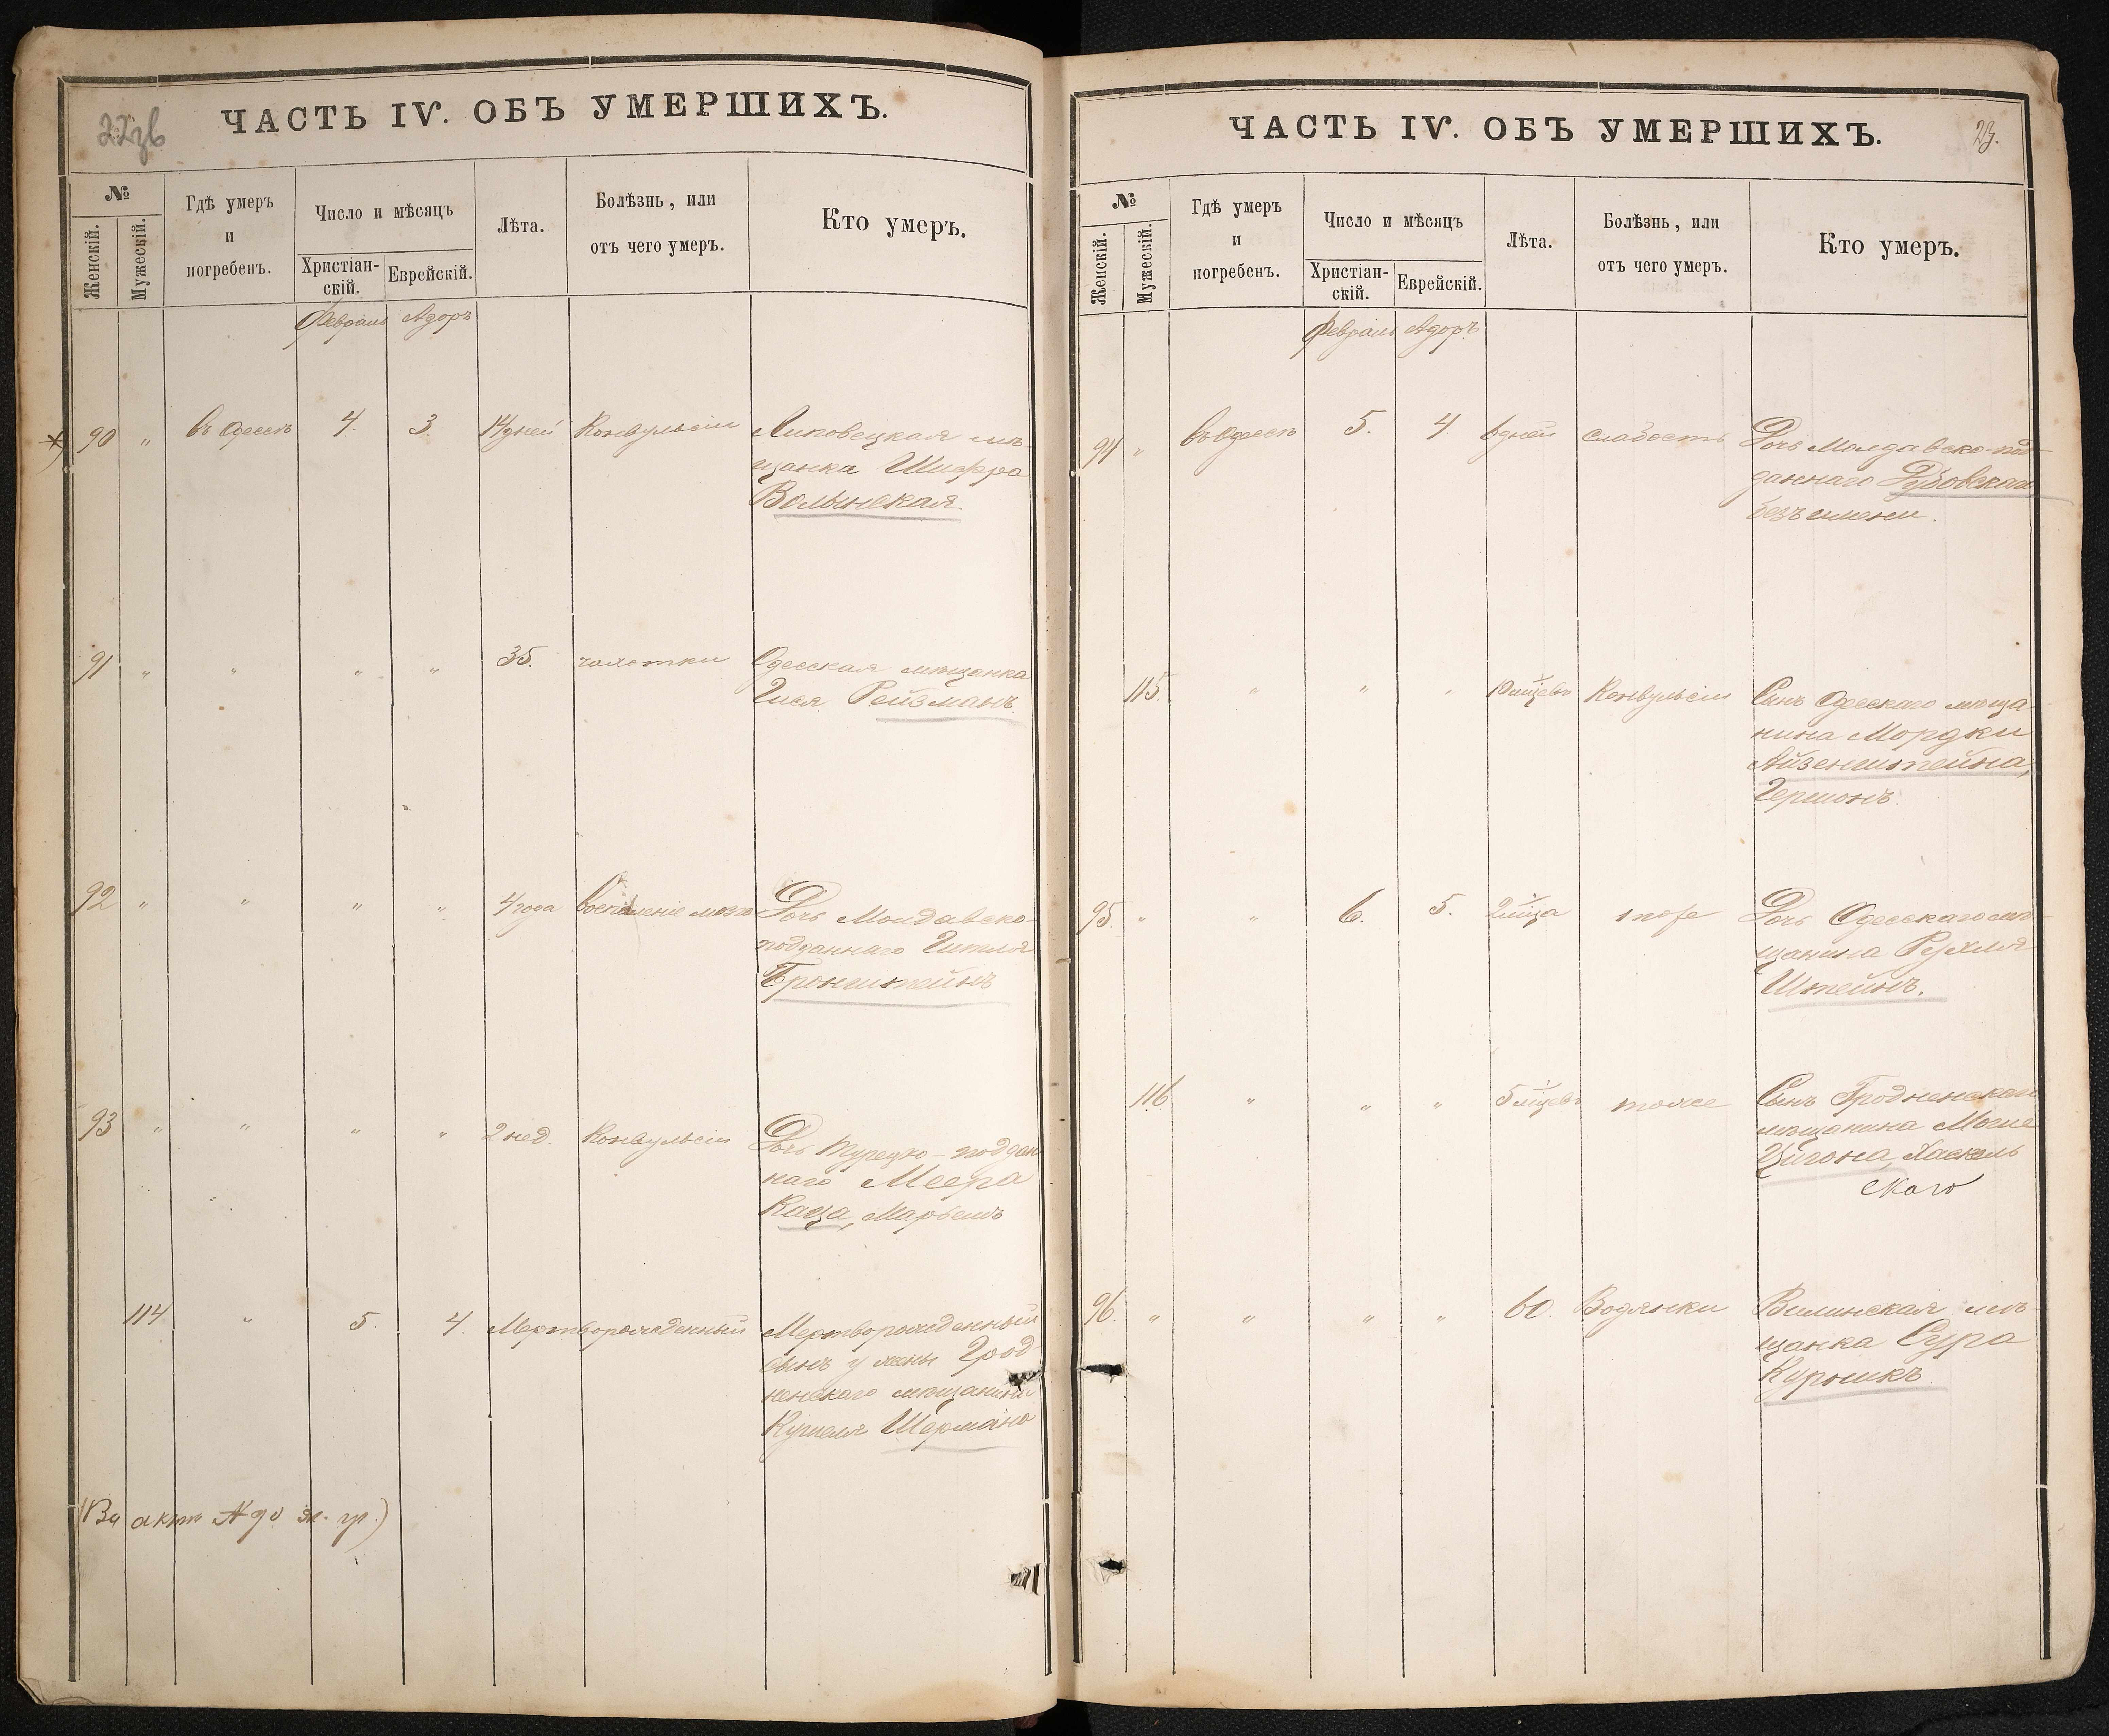 22зв
ЧАСТЬ IV. ОБЪ УМЕРШИХЪ.
№
Женскій.
Мужескій.
Гдѣ умеръ
и
погребенъ.
Число и мѣсяцъ
Христіан-
скій.
Еврейскій.
Лѣта.
Болѣзнь, или
отъ чего умеръ.
Кто умеръ.
Февраль Адоръ
90 " въ Одессѣ 4. 3. 14 дней Конвульсіи Липовецкая мѣ-
щанка Шифра
Волынская.
91 " " " " 35. чахотки Одесская мѣщанка
Гися Рейзманъ
92 " " " " 4 года Воспаленіе мозга Дочь Молдавско-
подданнаго Гитля
Бронштейнъ
93 " " " " 2 нед. Конвульсіи Дочь Турецко-поддан
наго Меера
Каца, Марьемъ
114 " 5. 4. Мертворожденный Мертворожденный
сынъ у жены Грод
ненскаго мѣщанина
Кушеля Шермана
актъ № 90
ЧАСТЬ IV. ОБЪ УМЕРШИХЪ.
23.
№
Женскій.
Мужескій.
Гдѣ умеръ
и
погребенъ.
Число и мѣсяцъ
Христіан-
скій.
Еврейскій.
Лѣта.
Болѣзнь, или
отъ чего умеръ.
Кто умеръ.
Февраль Адоръ
94 " въ Одессѣ 5. 4. 6 дней слабость Дочь Молдавско-под-
даннаго
безъ имени.
115. " " " 10 мѣцевъ Конвульсіи Сынъ Одесскаго мѣща
нина Мордки
Айзенштейна,
Гершонъ.
95. " " 6. 5. 2 мѣца тоже Дочь Одесскаго мѣ-
щанина Рухля
Штейнъ.
116 " " " 5 мѣцевъ тоже Сынъ Гродненскаго
мѣщанина Мосне
Цигона, Хаскель
скаго
96. " " " " 60. Водянки Виленская мѣ-
щанка Сура
Курникъ